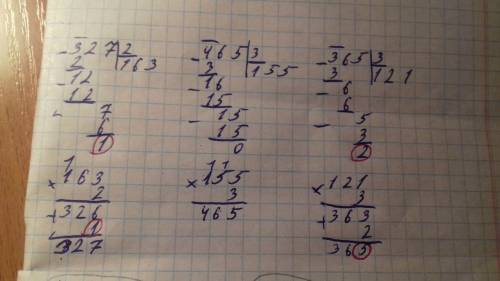 - 327 | 2
2 | 163
- 12
12
- 7
6
1
- 465 | 3
3 | 155
- 16
15
- 15
15
0
- 365 | 3
3 | 121
- 6
6
- 5
3
2
1
× 163
2
+ 326
1
327
11
× 155
3
465
× 121
3
+ 363
2
365